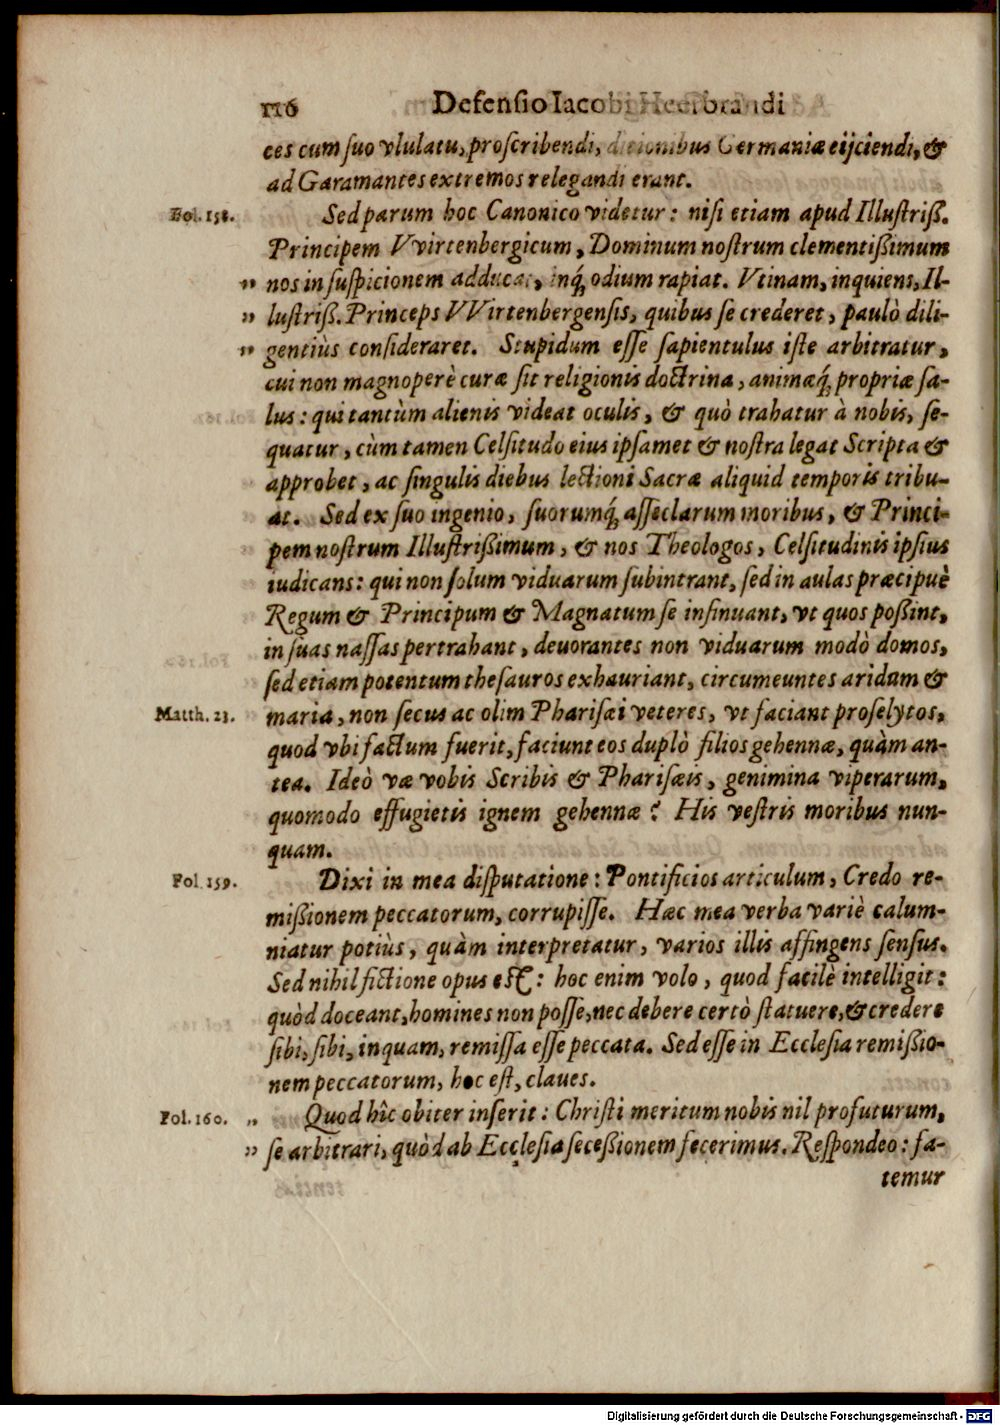 116 Defensio Iacobi Heerbrandi
ces cum ſuo vlulatu, proſcribendi, ditionibus Germaniæ eijciendi, &
ad Garamantes extremos relegandi erant.
Fol. 158. Sed parum hoc Canonico videtur: niſi etiam apud Illuſtriß.
Principem VVirtenbergicum, Dominum noſtrum clementißimum
„ nos in ſuſpicionem adducat, inq́; odium rapiat. Vtinam, inquiens, Il-
„ luſtriß. Princeps VVirtenbergenſis, quibus ſe crederet, paulò dili-
„ gentiùs conſideraret. Stupidum eſſe ſapientulus iſte arbitratur,
cui non magnoperè curæ ſit religionis doctrina, animæq́; propriæ ſa-
lus: qui tantùm alienis videat oculis, & quò trahatur à nobis, ſe-
quatur, cùm tamen Celſitudo eius ipſamet & noſtra legat Scripta &
approbet, ac ſingulis diebus lectioni Sacræ aliquid temporis tribu-
at. Sed ex ſuo ingenio, ſuorumq́; aſſeclarum moribus, & Princi-
pem noſtrum Illuſtrißimum, & nos Theologos, Celſitudinis ipſius
iudicans: qui non ſolum viduarum ſubintrant, ſed in aulas præcipuè
Regum & Principum & Magnatum ſe inſinuant, vt quos poßint,
in ſuas naſſas pertrahant, deuorantes non viduarum modò domos,
ſed etiam potentum theſauros exhauriant, circumeuntes aridam &
Matth. 23. maria, non ſecus ac olim Phariſæi veteres, vt faciant proſelytos,
quod vbi factum fuerit, faciunt eos duplò filios gehennæ, quàm an-
tea. Ideò væ vobis Scribis & Phariſæis, genimina viperarum,
quomodo effugietis ignem gehennæ? His veſtris moribus nun-
quam.
Fol. 159. Dixi in mea diſputatione: Pontificios articulum, Credo re-
mißionem peccatorum, corrupiſſe. Hæc mea verba variè calum-
niatur potiùs, quàm interpretatur, varios illis affingens ſenſus.
Sed nihil fictione opus eſt: hoc enim volo, quod facilè intelligit:
quòd doceant, homines non poſſe, nec debere certò ſtatuere, & credere
ſibi, ſibi, inquam, remiſſa eſſe peccata. Sed eſſe in Eccleſia remißio-
nem peccatorum, hoc eſt, claues.
Fol. 160. „ Quod hîc obiter inſerit: Chriſti meritum nobis nil profuturum,
„ ſe arbitrari, quòd ab Eccleſia ſeceßionem fecerimus. Reſpondeo: fa-
temur
Digitalisierung gefördert durch die Deutsche Forschungsgemeinschaft - DFG